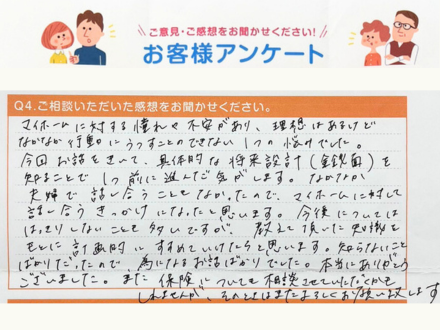 ご意見・ご感想をお聞かせください!
お客様アンケート
Q4.ご相談いただいた感想をお聞かせください。
マイホームに対する憧れや不安があり、理想はあるけど
なかなか行動にうつすことのできない1つの悩みでした。
今回お話をきいて、具体的な将来設計(金銭面)を
知ることで1つ前に進んだ気がします。なかなか
夫婦で話し合うこともなかったので、マイホームに対して
話し合うきっかけになったと思います。今後については
はっきりしないことも多いですが、教えて頂いた知識を
もとに計画的にすすめていけたらと思います。知らないこと
ばかりだったので、為になるお話ばかりでした。本当にありがとう
ございました。また保険についても相談させていただくかも
しれませんが、そのときはまたよろしくお願い致します